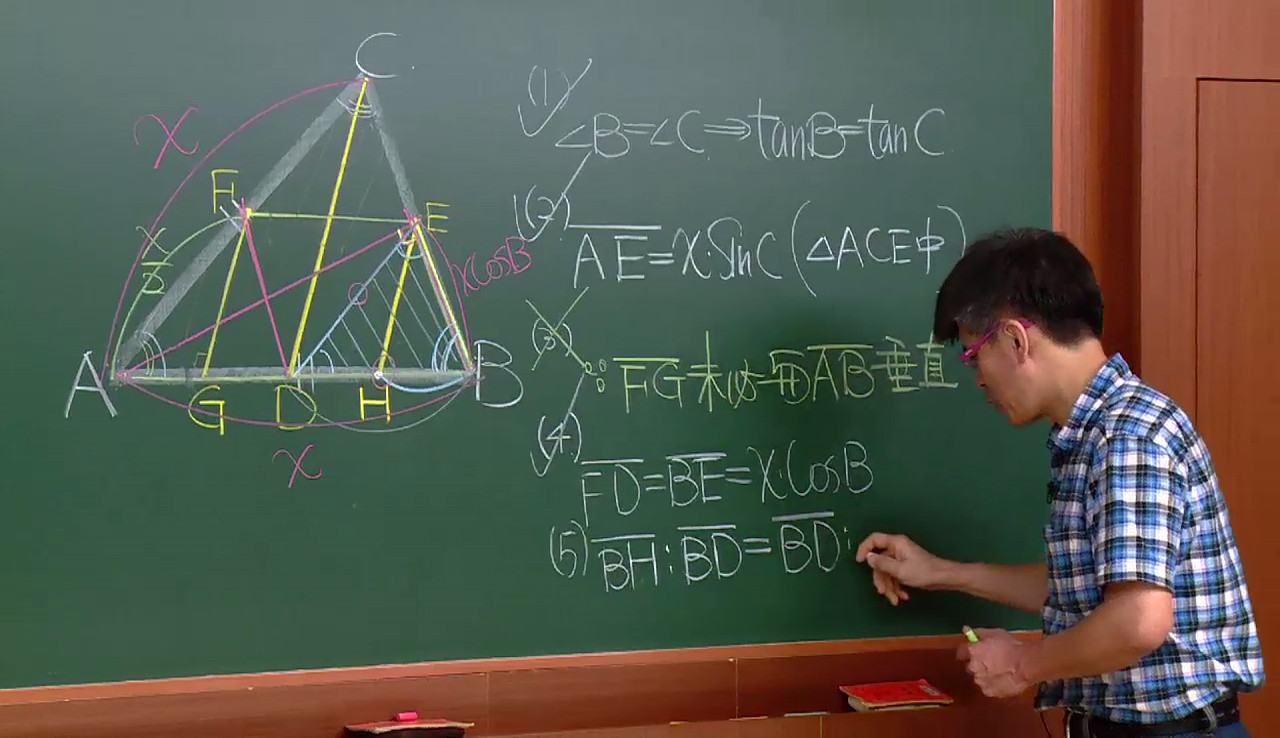 C
X
F
E
x/2
xcosB
A
B
G D H
x
(1) ∠B=∠C⇒tanB=tanC
(2) AE=x·sinC(△ACE中)
(3) ∵FG未必與AB垂直
(4) FD=BE=x·cosB
(5) BH:BD=BD: